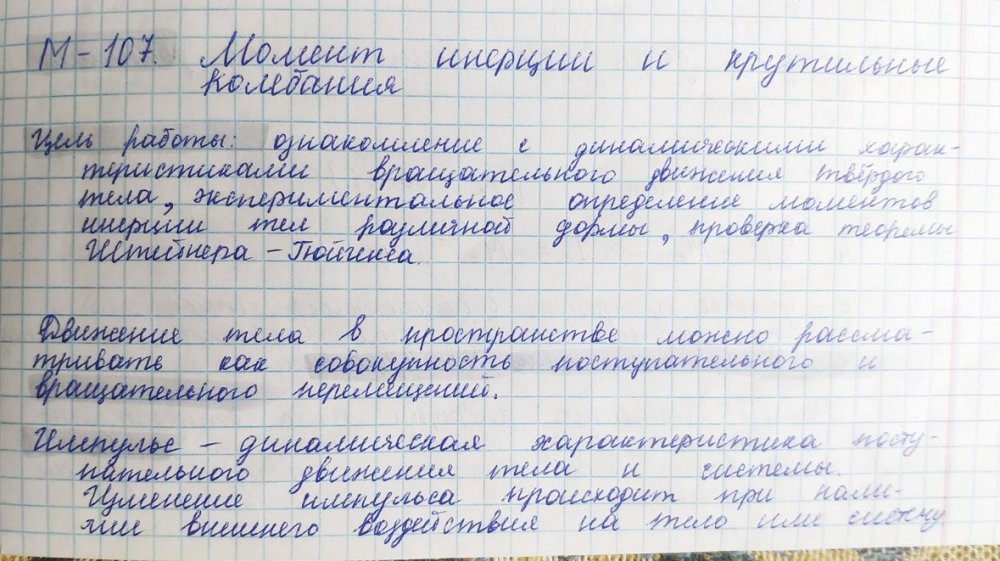 М-107. Момент инерции и крутильные
колебания
Цель работы: ознакомление с динамическими харак-
теристиками вращательного движения твёрдого
тела, экспериментальное определение моментов
инерции тел различной формы, проверка теоремы
Штейнера - Гюйгенса.
Движение тела в пространстве можно рассма-
тривать как совокупность поступательного и
вращательного перемещений.
Импульс - динамическая характеристика посту-
пательного движения тела и системы.
Изменение импульса происходит при нали-
чии внешнего воздействия на тело или систему